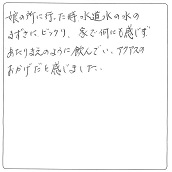 娘の所に行った時水道水の水の
まずさにビックリ、家で何にも感じず
あたりまえのように飲んでい、アクアスの
おかげだと感じました。